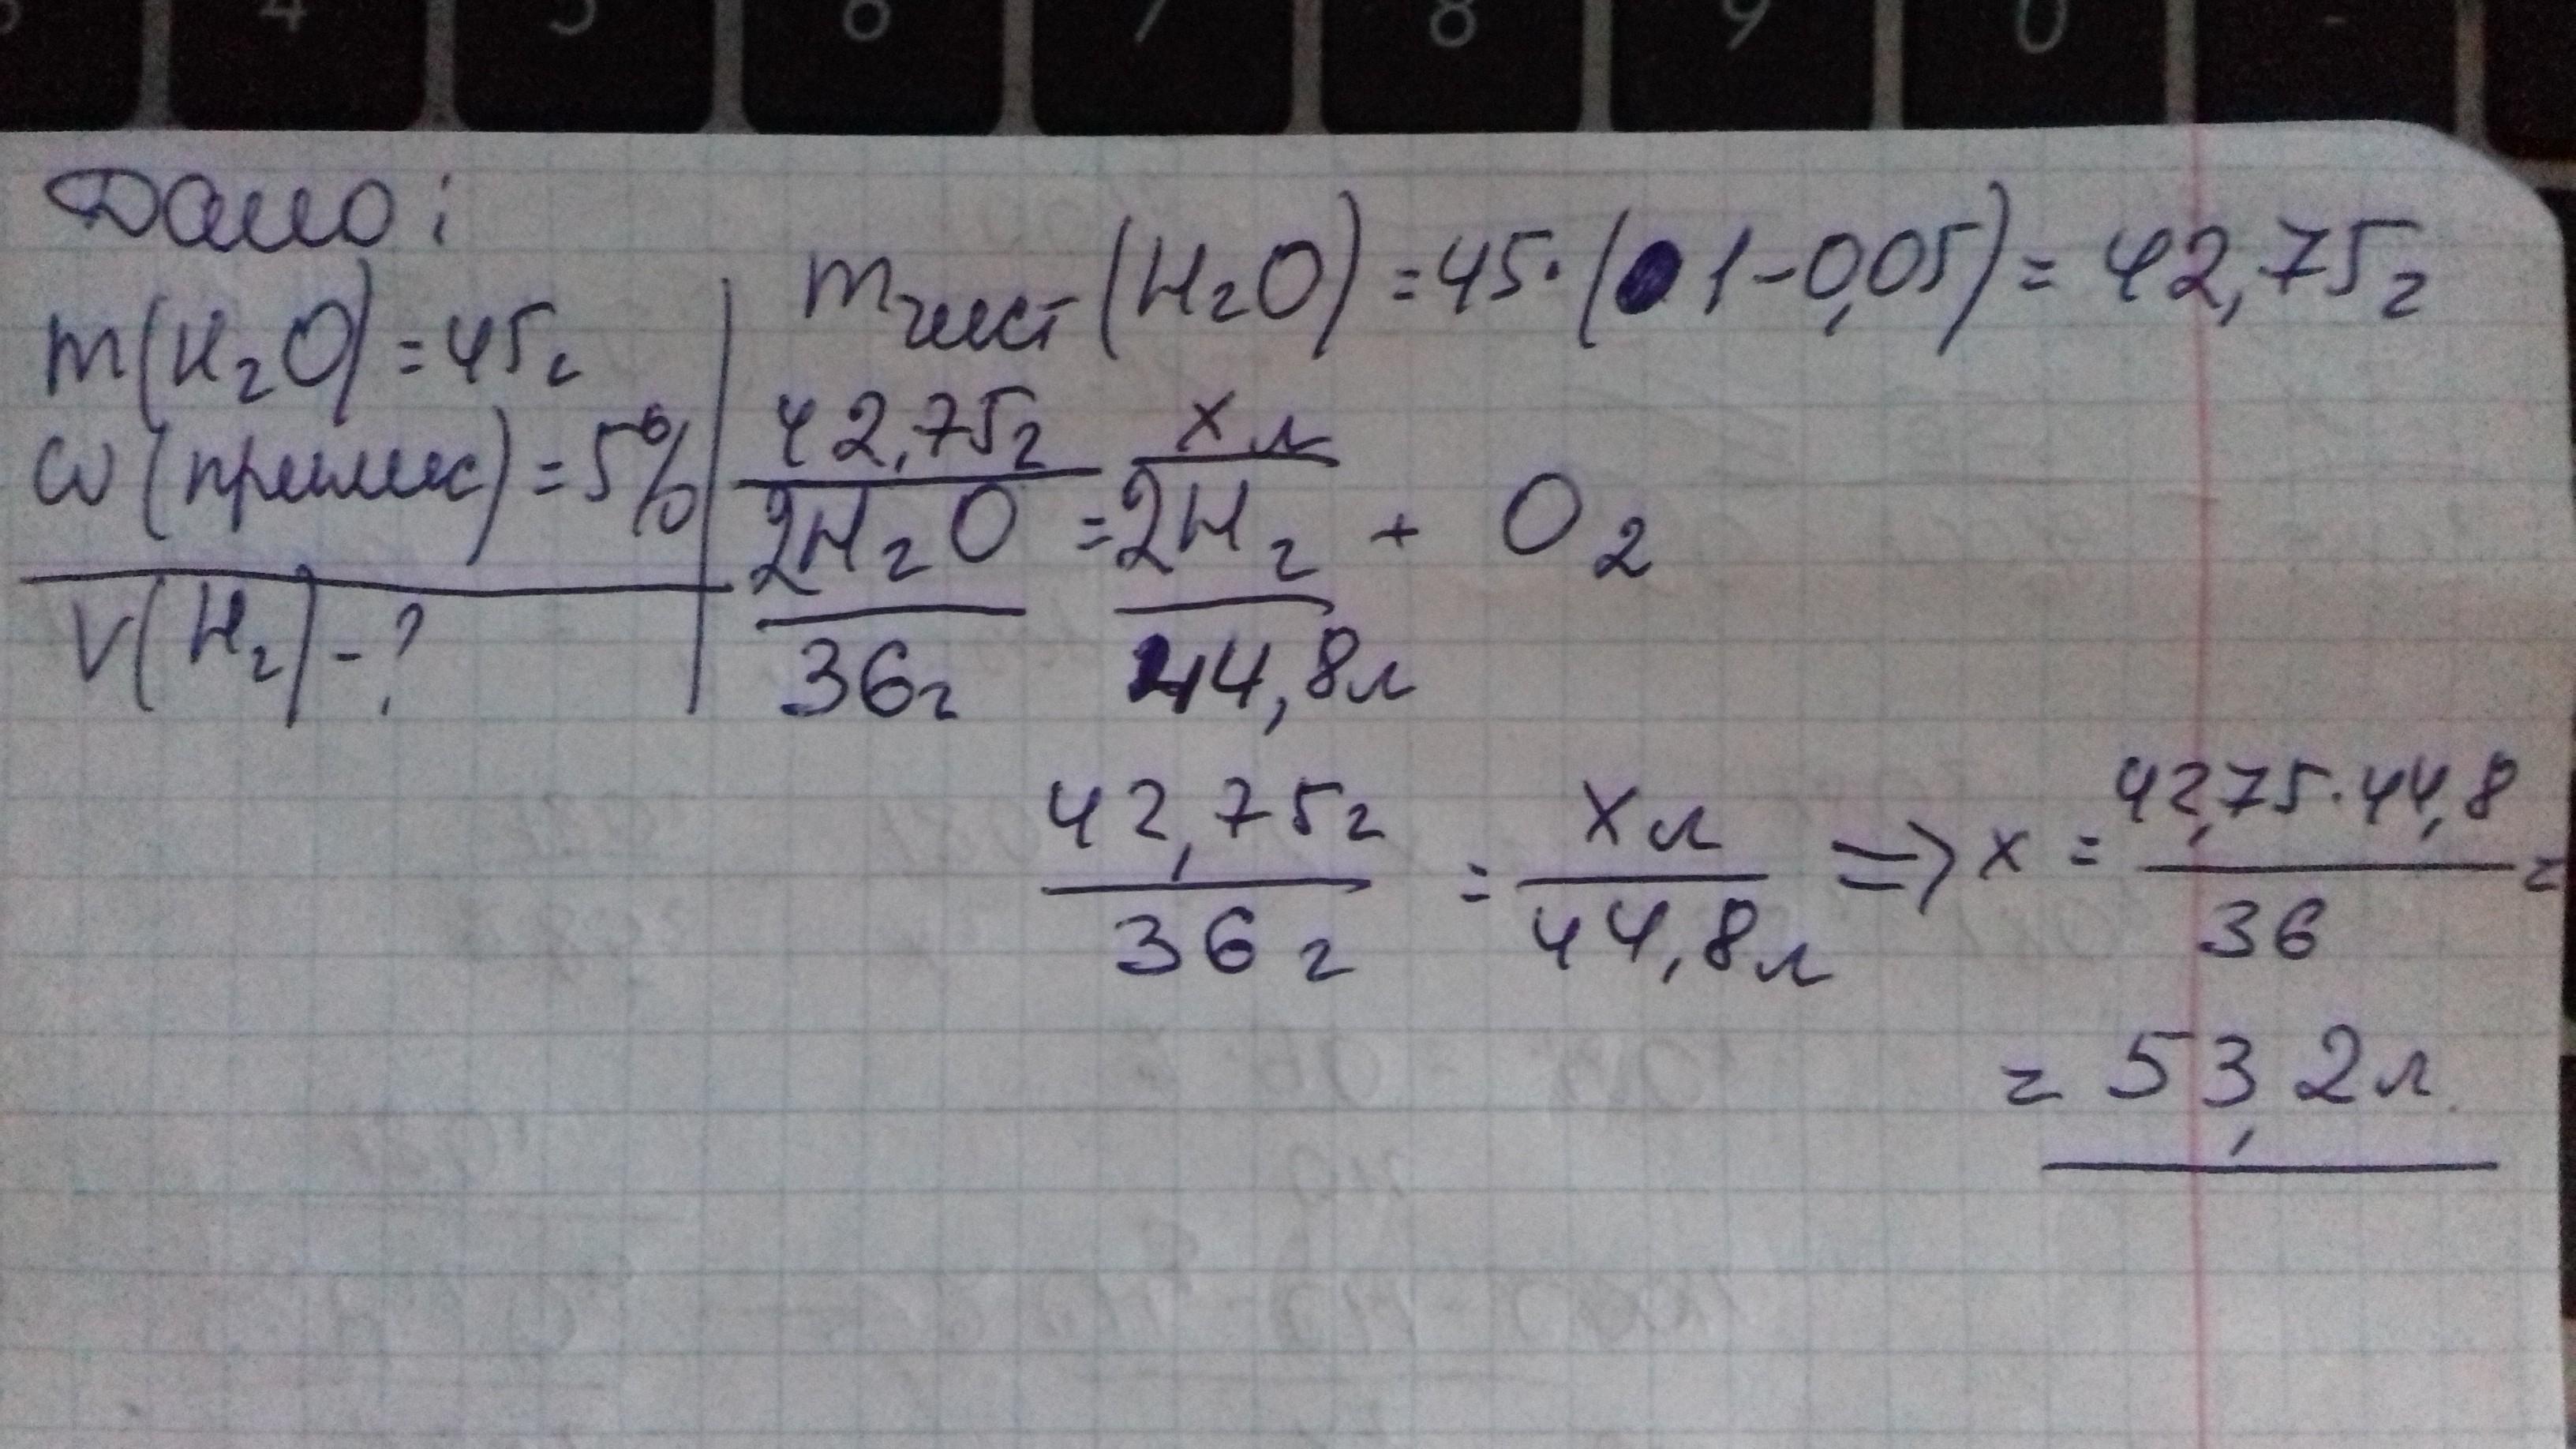 4 5 6 7 8 9 0 -
Дано:
m(H₂O) = 45г
ω(примес) = 5%
V(H₂) - ?
mчист(H₂O) = 45·(1-0,05) = 42,75г
42,75г x л
2H₂O = 2H₂ + O₂
36г 44,8л
42,75г / 36г = xл / 44,8л => x = 42,75·44,8 / 36 =
= 53,2л